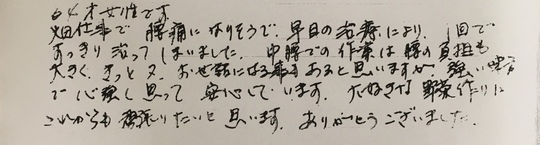 64才女性です
畑仕事で腰痛になりそうで、早目の治療により、1回で
すっきり治ってしまいました。中腰での作業は腰の負担も
大きく、きっと又、お世話になる事もあると思いますが、強い味方
で心強く思って安心しています。大好きな野菜作りに
これからも頑張りたいと思います。ありがとうございました。